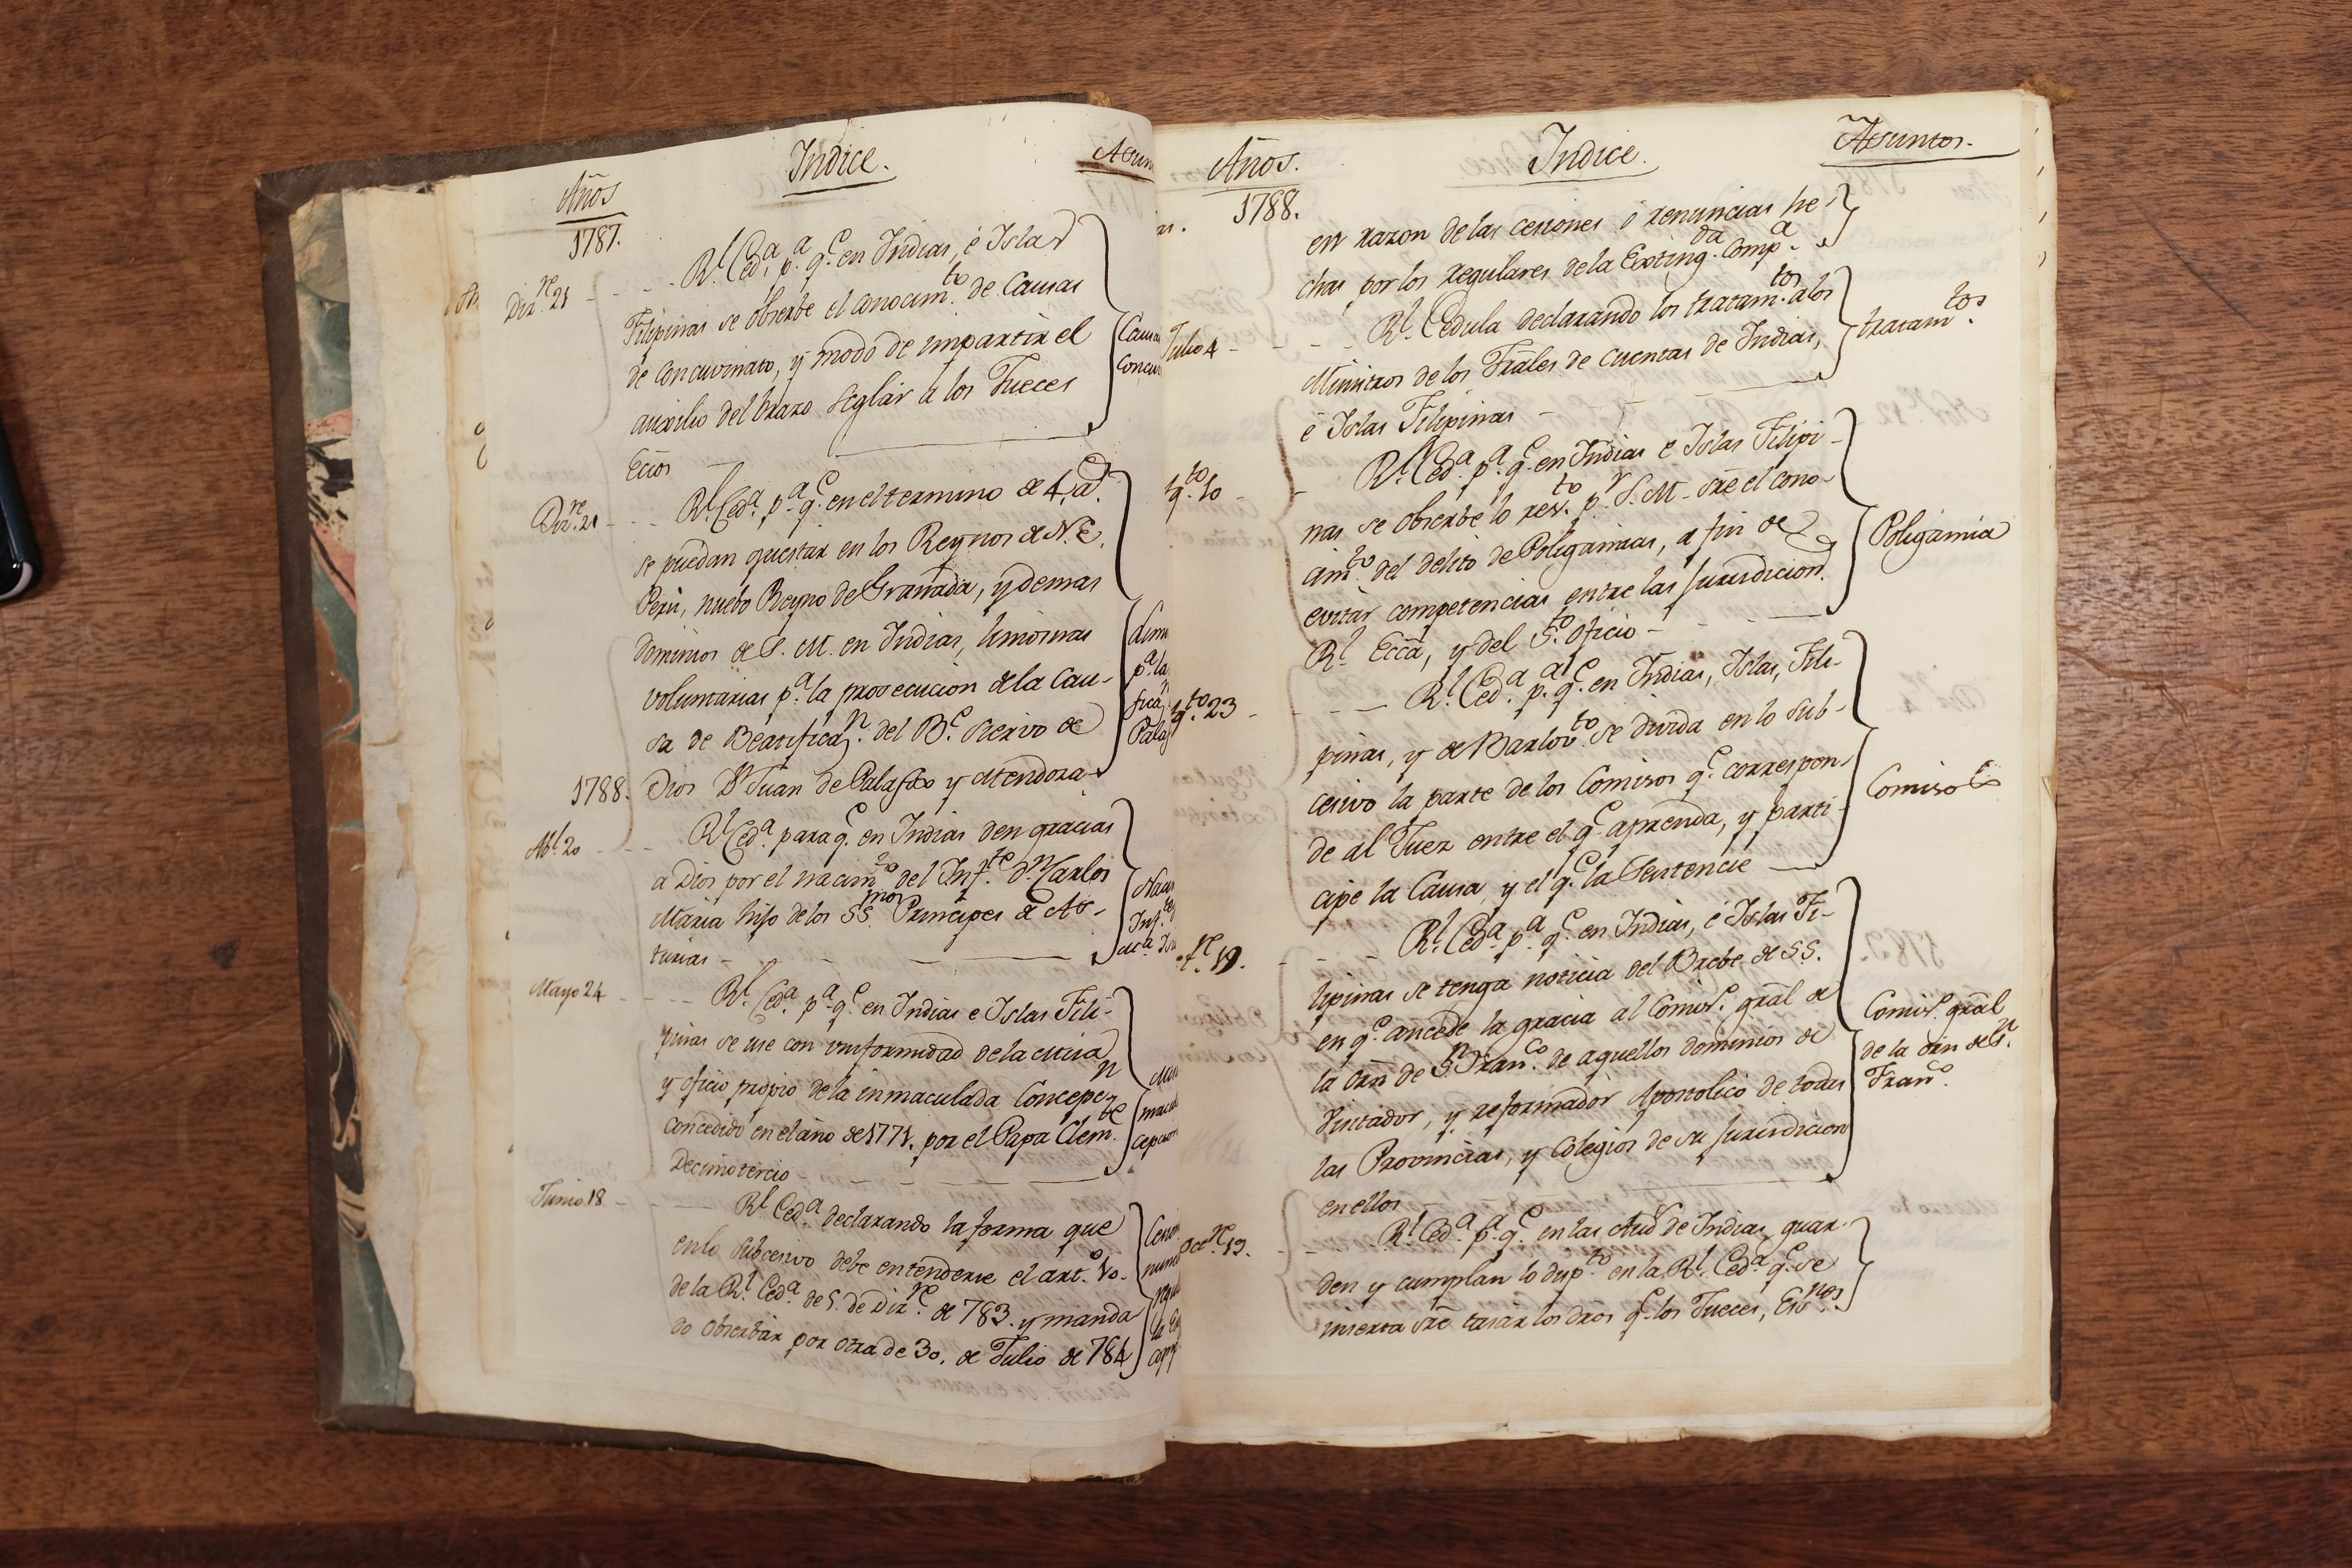 Años Indice. Asun
1787.
Diz.re 21 - - - R.l Ced.a p.a q.e en Indias, é Islas
Filipinas se observe el conocim.to de Causas Causas
de Concuvinato, y modo de impartir el Concuv
auxilio del brazo seglar a los Jueces
Eccõs
Diz.re 21 - - - R.l Ced.a p.a q.e en el termino de 4, a.s
se puedan questar en los Reynos de N. E.
Perú, nuevo Reyno de Granada, y demas
dominios de S. M. en Indias, limosnas Limo
voluntarias p.a la prosecucion de la Cau- p.a la
sa de Beatificaz.n del B.e siervo de ficaz.n
Dios D.n Juan de Palafox y Mendoza - Palaf
1788.
Ab.l 20 - - R.l Ced.a para q.e en Indias den gracias
a Dios por el nacim.to del Inf.te D.n Carlos Naci
Maria hijo de los SS.mos Principes de As- Inf.te
turias -
Mayo 24 - - - R.l Ced.a p.a q.e en Indias e Islas Fili-
pinas se use con uniformidad de la Misa
y oficio propio de la inmaculada Concepc.n
concedido en el año de 1771. por el Papa Clem.te macul
Decimotercio - cepcion
Junio 18 - - R.l Ced.a declarando la forma que
en lo subcesivo debe entenderse el art.o 10. Cesio
de la R.l Ced.a de 5. de Diz.re de 783. y manda nunc
do observar por otra de 30. de Julio de 784 regul
Años. Indice. Asuntos.
1788.
en razon de las cesiones ó renuncias he-
chas por los regulares de la Exting.da Comp.a
Julio 4 - - - R.l Cedula declarando los tratam.tos a los tratam.tos
Ministros de los Trãles de Cuentas de Indias,
é Islas Filipinas - - -
Ag.to 10 - - R.l Ced.a p.a q.e en Indias e Islas Filipi-
nas se observe lo res.to p.r S. M. sre el cono-
cim.to del delito de Poligamias, a fin de Poligamia
evitar competencias entre las Jurisdicion.s
R.l Eccã, y del S.to Oficio -
Ag.to 23 - - - R.l Ced.a p.a q.e en Indias, Islas, Fili-
pinas, y de Barlov.to se divida en lo sub-
cesivo la parte de los Comisos q.e correspon- Comisos
de al Juez entre el q.e aprenda, y parti-
cipe la Causa, y el q.e la Sentencie
re 19. - - R.l Ced.a p.a q.e en Indias, é Islas Fi-
lipinas se tenga noticia del Brebe de SS.
en q.e concede la gracia al Comis.o grãl de Comis.o grãl
la orñ de S.n Fran.co de aquellos dominios de de la orñ de S.n
Visitador, y reformador Apostolico de todas Fran.co
las Provincias, y Colegios de su Jurisdicion
en ellos -
Oct.re 19. - - R.l Ced.a p.a q.e en las Aud.s de Indias, guar-
den y cumplan lo disp.to en la R.l Ced.a q.e se
inserta sre tasar los drõs q.e los Jueces, Esc.nos